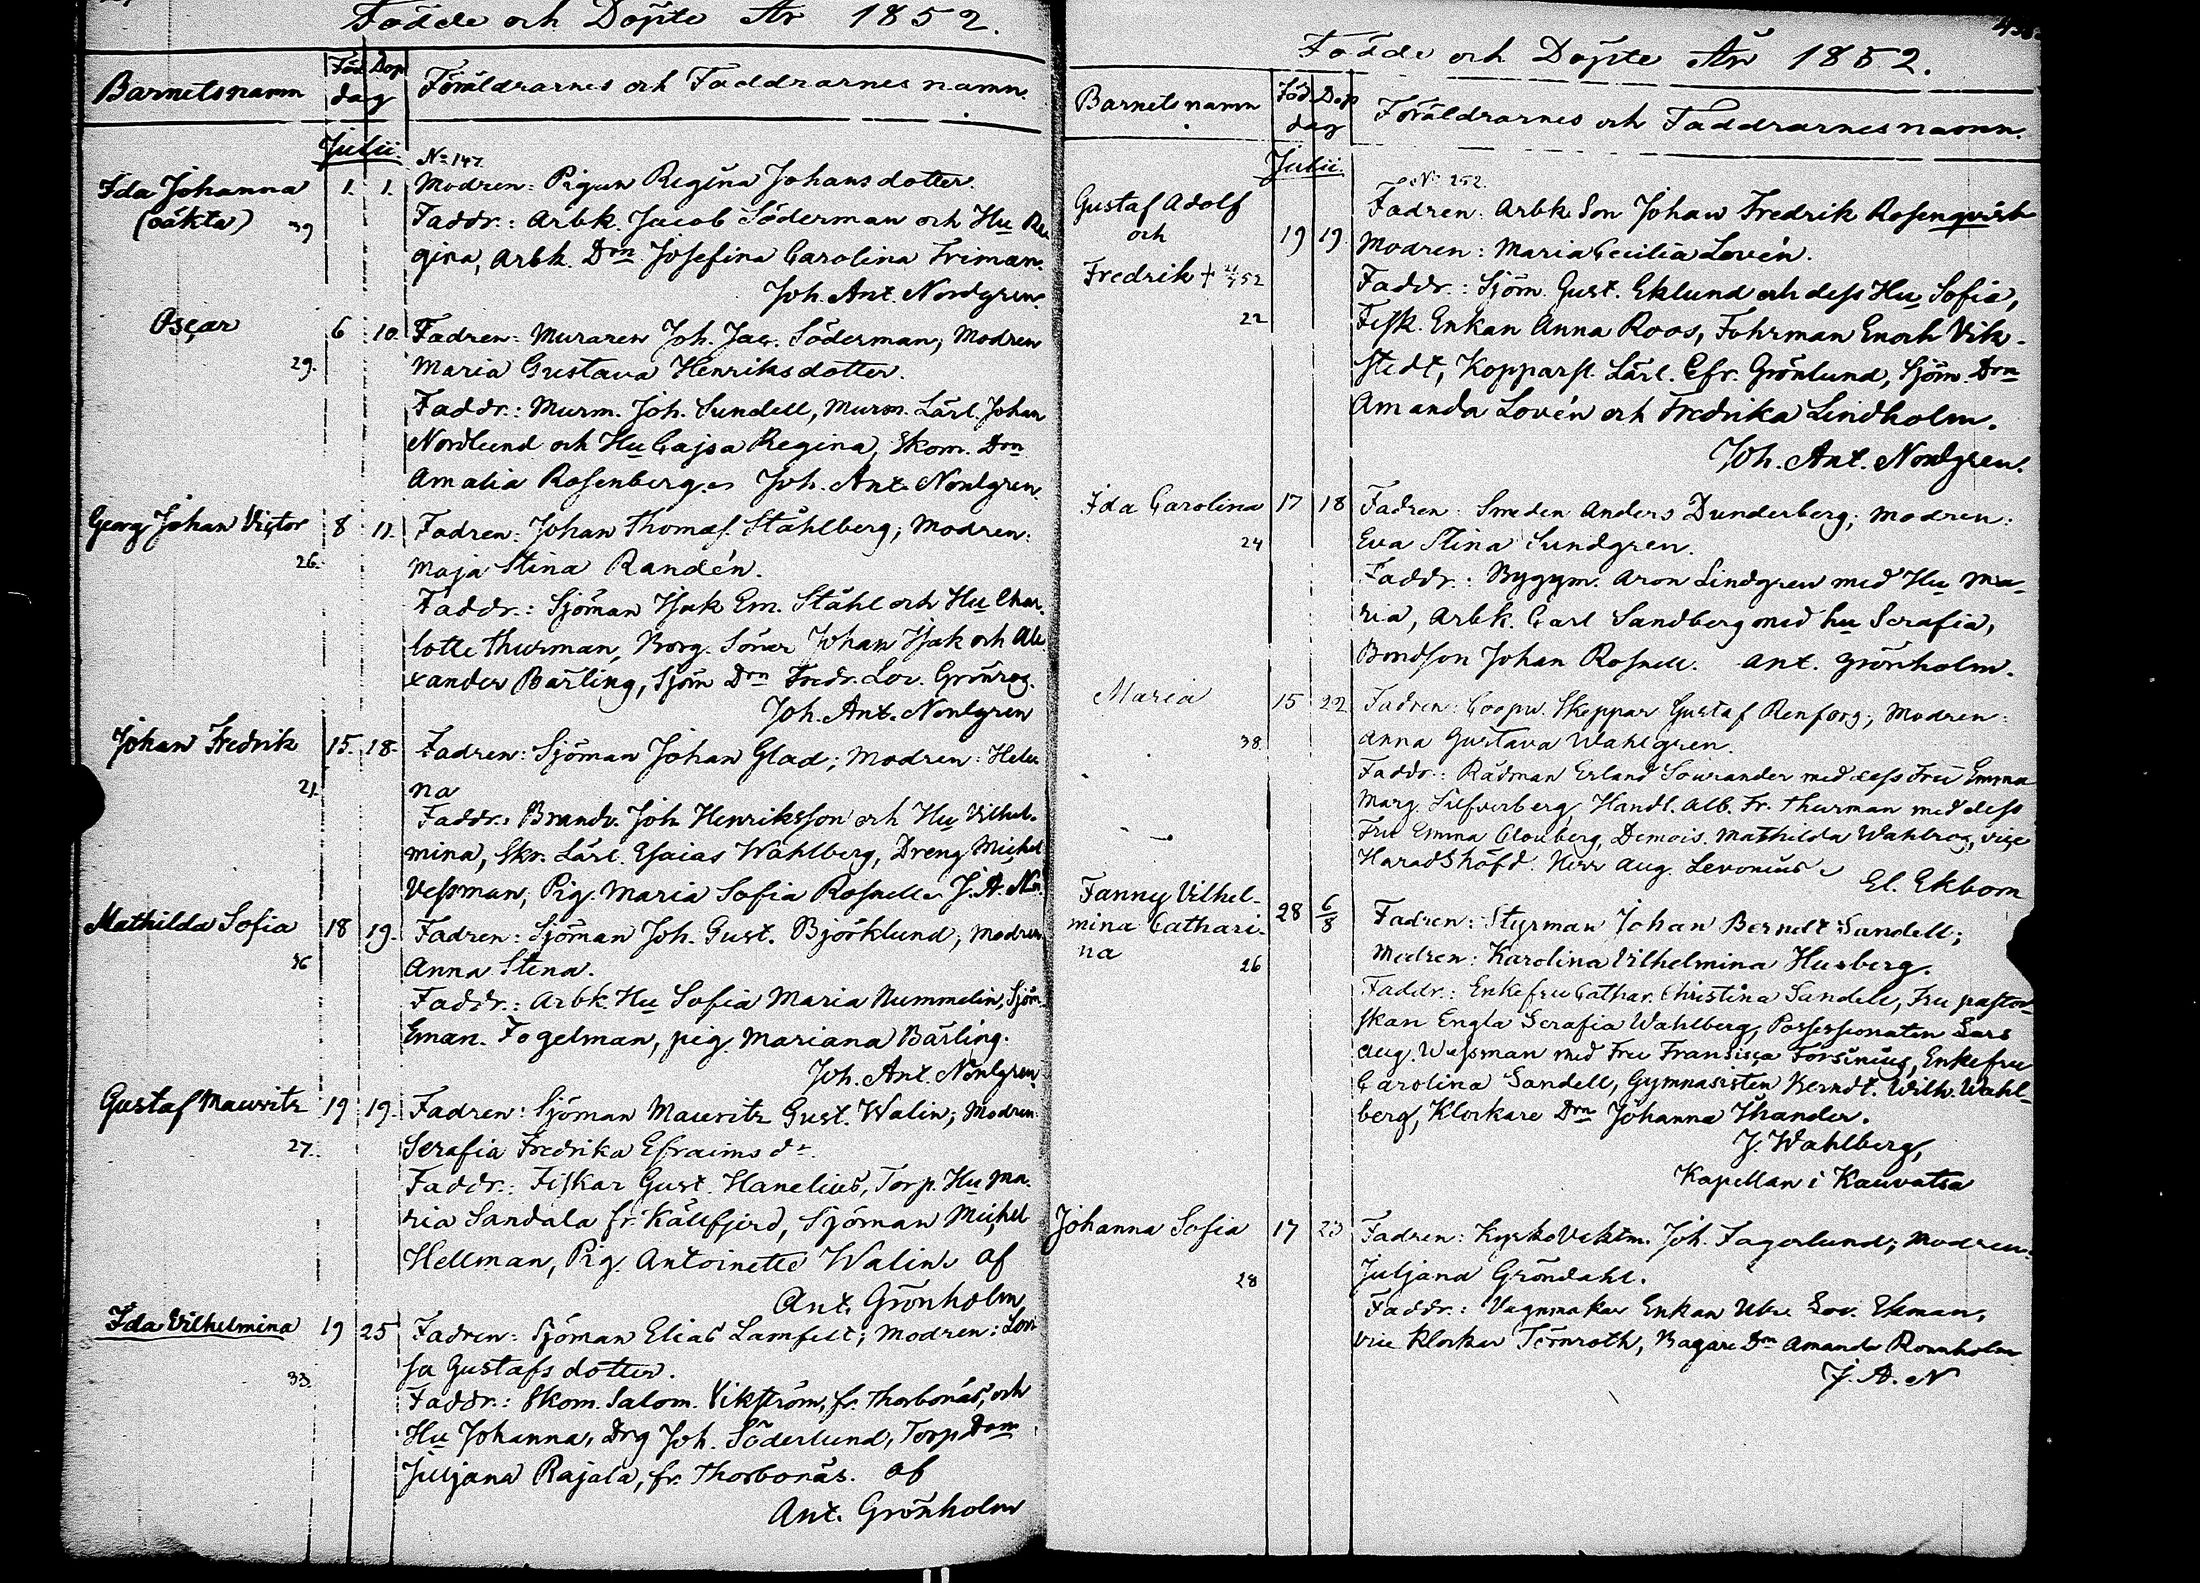 Födde och Döpte År 1852.
Barnets namn
Föd Dop
dag
Föräldrarnes och Faddrarnes namn.
Julii.
No 147.
Ida Johanna 1. 1. Modren: Pigan Regina Johansdotter.
(oäkta) 39 Faddr.: Arbk. Jacob Söderman och Hu Re-
gina, Arbk. Drn Josefina Carolina Friman.
Joh. Ant. Nordgren.
Oscar 6 10. Fadren: Muraren Joh. Jac. Söderman; Modren
29. Maria Gustava Henriksdotter.
Faddr.: Murm. Joh. Sundell, Murm. Lärl. Johan
Nordlund och Hu Cajsa Regina, Skom. Drn
Amalia Rosenberg. Joh. Ant. Nordgren.
Georg Johan Victor 8 11. Fadren: Johan Thomas Ståhlberg; Modren:
26. Maja Stina Randén.
Faddr.: Sjöman Isak Em. Ståhl och Hu Char-
lotte Thurman, Borg. Söner Johan Isak och Ale
xander Bärling, Sjöm Drn Fredr. Lov. Grönroos.
Joh. Ant. Nordgren
Johan Fredrik 15. 18. Fadren: Sjöman Johan Glad; Modren: Hele
21. na
Faddr. Brandv. Joh Henriksson och Hu Vilhel-
mina, Skr. Lärl. Esaias Wahlberg, Dreng Michel
Vessman, Pig. Maria Sofia Rosnell. J. A. N.
Mathilda Sofia 18 19. Fadren: Sjöman Joh. Gust. Björklund; Modren
36 Anna Stina.
Faddr.: Arbk. Hu Sofia Maria Nummelin, Sjöm.
Eman. Fogelman, pig. Mariana Bärling.
Joh. Ant. Nordgren.
Gustaf Mauritz 19 19. Fadren: Sjöman Mauritz Gust. Walin; Modren
27. Serafia Fredrika Efraims dr.
Faddr.: Fiskar Gust. Hanelius, Torp. Hu Ma-
ria Sandala fr. Källfjerd, Sjöman Michel
Hellman, Pig. Antoinette Walin. af
Ant. Grönholm
Ida Vilhelmina 19 25 Fadren: Sjöman Elias Lamfelt; Modren: Lovi
33. sa Gustafsdotter.
Faddr.: Skom. Salom. Vikström, fr. Thorbonäs, och
Hu Johanna, Drg Joh. Söderlund, Torp. Drn
Juljana Rajala, fr. Thorbonäs. af
Ant. Grönholm
Födde och Döpte År 1852.
Barnets namn
Föd Dop
dag
Föräldrarnes och Faddrarnes namn.
Julii.
No 252.
Gustaf Adolf Fadren: Arbk Son Johan Fredrik Rosenqvist
och 19 19. Modren: Maria Cecilia Lovén.
Fredrik + Faddr.: Sjöm. Gust. Eklund och dess Hu Sofia,
22 Fisk. Enkan Anna Roos, Fohrman Enoch Vik-
stedt, Kopparsl. Lärl. Efr. Grönlund, Sjöm. Drn
Amanda Lovén och Fredrika Lindholm.
Joh. Ant. Nordgren.
Ida Carolina 17 18 Fadren: Smeden Anders Dunderberg; Modren:
24 Eva Stina Sundgren.
Faddr.: Byggm. Aron Lindgren med Hu Ma-
ria, Arbk. Carl Sandberg med hu Serafia,
Bondson Johan Rosnell. Ant. Grönholm.
Maria 15 22 Fadren: Coopv. Skeppar Gustaf Renfors; Modren:
38. Anna Gustava Wahlgren.
Faddr.: Rådman Erland Sourander med dess Fru Emma
Marg. Silfverberg, Handl. Alb. Fr. Thurman med dess
Fru Emma Clouberg, Demois. Mathilda Wahlroos, vice
Häradshöfd. Herr Aug. Levonius.
El. Ekbom
Fanny Vilhel- 28 6/8 Fadren: Styrman Johan Berndt Sandell;
mina Cathari- Modren: Karolina Vilhelmina Husberg.
na 26
Faddr.: Enkefru Cathar. Christina Sandell, Fru pastor-
skan Engla Serafia Wahlberg, Possessionaten Lars
Aug. Wessman med Fru Fransisca Forsinius, Enkefru
Carolina Sandell, Gymnasisten Berndt. Wilh. Wahl-
berg, Klockare Drn Johanna Thander.
J. Wahlberg,
Kapellan i Kauvatsa
Johanna Sofia 17 23 Fadren: KyrkoVaktm. Joh. Fagerlund; Modren:
28 Juljana Gröndahl.
Faddr.: Vagnmakar Enkan Ulr. Lov. Ekman,
vice klockar Ternroth, Bagare Drn Amanda Rönnholm
J. A. N